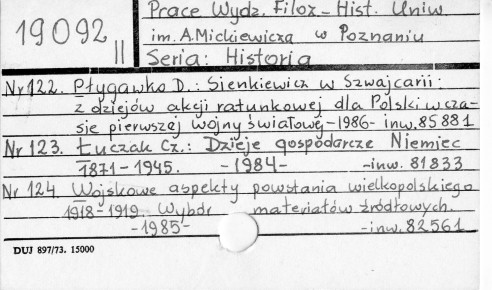 19092
II
Prace Wydz. Filoz.-Hist. Uniw
im. A. Mickiewicza w Poznaniu
Seria: Historia
Nr 122. Płygawko D.: Sienkiewicz w Szwajcarii:
z dziejów akcji ratunkowej dla Polski w cza-
sie pierwszej wojny światowej -1986- inw. 85881
Nr 123. Łuczak Cz.: Dzieje gospodarcze Niemiec
1871-1945. -1984- -inw. 81833
Nr 124. Wojskowe aspekty powstania wielkopolskiego
1918-1919. Wybór materiałów źródłowych.
-1985- -inw. 82561
DUJ 897/73. 15000